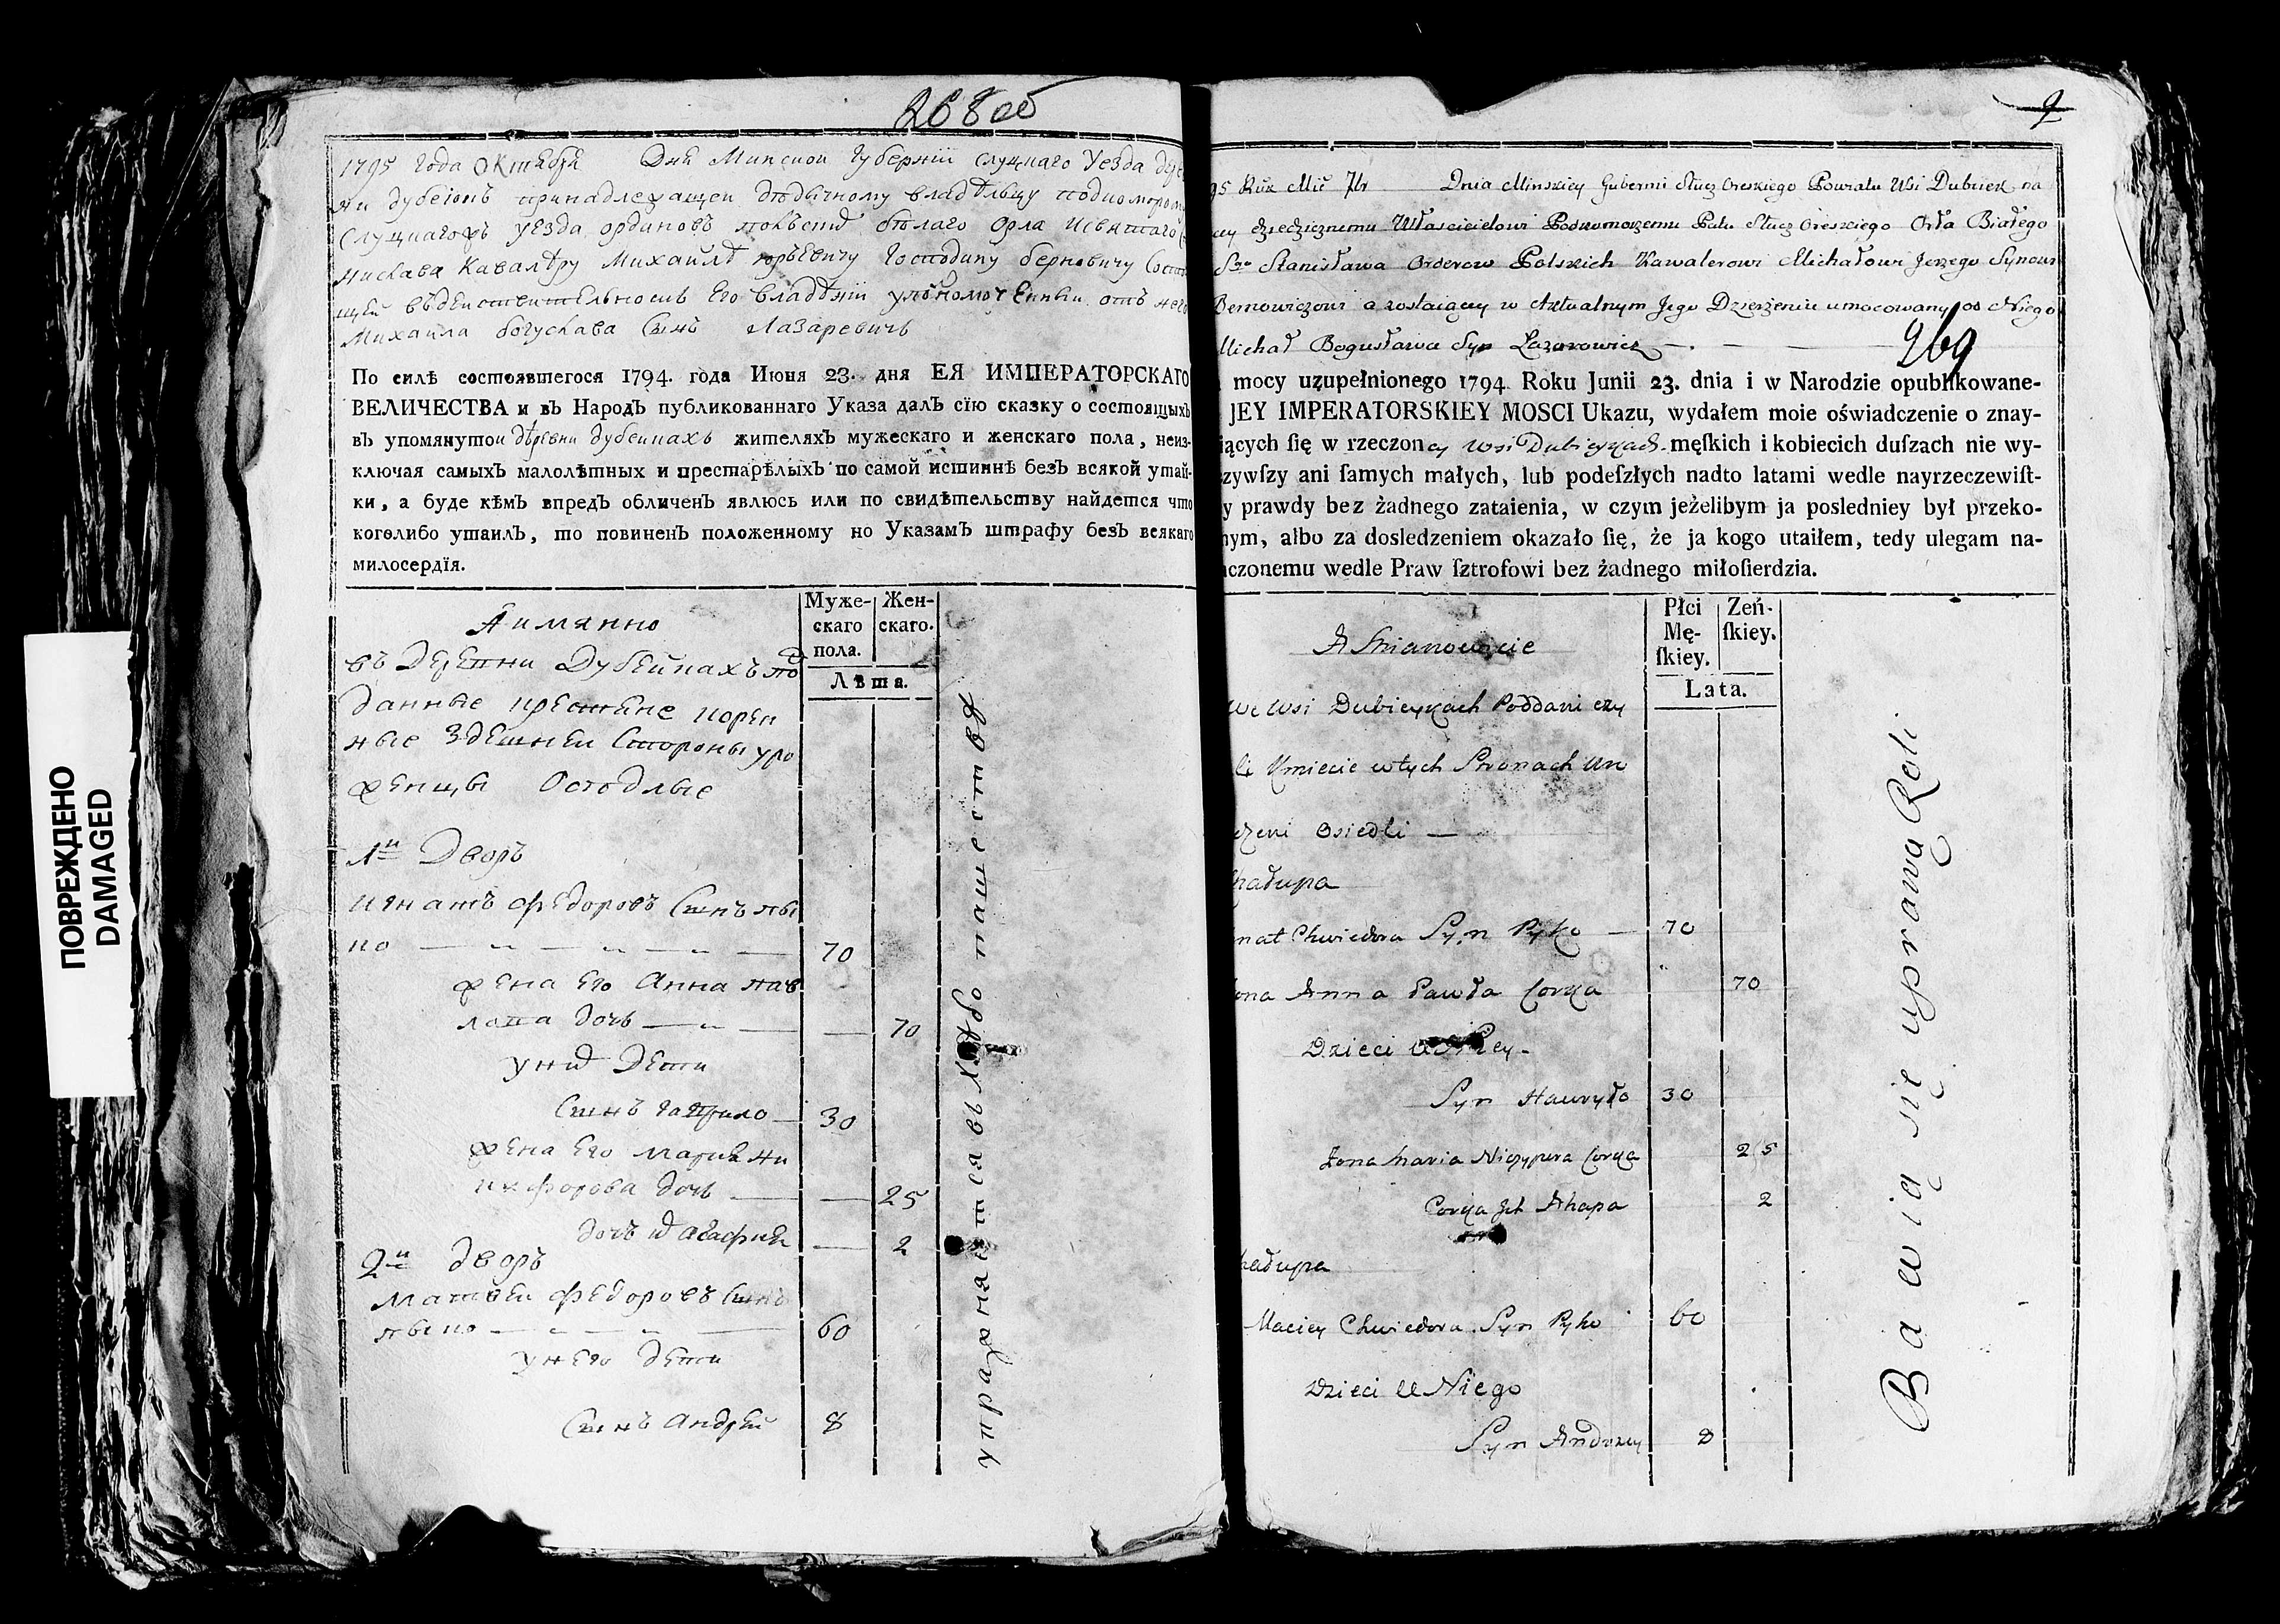 268 об
1795 года Октября Дня Минской Губернии Слуцкаго Уезда дерев
ни Дубеекъ принадлежащей дедычному владѣльцу подкоморому
Слуцкаго уезда ордановъ польскихъ бѣлаго Орла и святаго Ста
нислава Кавалеру Михайлѣ юрьевичу Господину берновичу Состоя
щей въ действительномъ Его владѣнии уполномоченный отъ него
Михаила богуслава Сынъ Лазаревичъ
По силѣ состоявшегося 1794. года Июня 23. дня ЕЯ ИМПЕРАТОРСКАГО
ВЕЛИЧЕСТВА и въ Народъ публикованнаго Указа далъ сїю сказку о состоящыхъ
въ упомянутой деревни дубейкахъ жителяхъ мужескаго и женскаго пола, неиз-
ключая самыхъ малолѣтных и престарѣлыхъ по самой истиннѣ безъ всякой утай-
ки, а буде кѣмъ впредъ обличенъ явлюсь или по свидѣтельству найдется что
коголибо утаилъ, то повиненъ положенному по Указамъ штрафу безъ всякаго
милосердїя.
Муже- Жен-
скаго скаго.
пола.
Лѣта.
А имянно
въ Деревни Дубейкахъ под
данные крестяне корен
ные здешней Стороны уро
женцы Оседлые
1й Дворъ
Игнатъ федоровъ Сынъ пы
ко 70
жена Его Анна пав
лова дочь 70
у нихъ Дети
Сынъ гаврило 30
жена Его Мария ни
кифорова дочь 25
дочь ихъ агафия 2
2й дворъ
Матвей федоровъ Сынъ
пыко 60
у него дети
Сынъ Андрей 8
упражняется въ хлѣбопашествѣ
9
95 Roku Mie 7br Dnia Minskiey Gubernii Słucz Oreskiego Powiatu Wsi Dubiiek na
cey dziedzicznemu Właścicielowi Podkomorzemu Pttu Słucz Oreskiego Orła Białego
Sgo Stanisława Orderow Polskich Kawalerowi Michałowi Jerzego Synowi
Bernowiczowi a zostaiącey w Aktualnym Jego Dzierżeniu umocowany od Niego
Michał Bogusława Syn Lazarowicz
269
mocy uzupełnionego 1794 Roku Junii 23. dnia i w Narodzie opublikowane-
JEY IMPERATORSKIEY MOSCI Ukazu, wydałem moie oświadczenie o znay-
iących ſię w rzeczoney wsi Dubieykach męſkich i kobiecich duſzach nie wy-
zywſzy ani ſamych małych, lub podeſzłych nadto latami wedle nayrzeczewiſt-
y prawdy bez żadnego zataienia, w czym jeżelibym ja posledniey był przeko-
nym, albo za dosledzeniem okazało ſię, że ja kogo utaiłem, tedy ulegam na-
aczonemu wedle Praw ſztrofowi bez żadnego miłoſierdzia.
Płci Zeń-
Mę- ſkiey.
ſkiey.
Lata.
A Mianowicie
We wsi Dubieykach Poddani czy
li Kmiecie w tych Stronach Uro
dzeni Osiedli
Chałupa
nat Chwiedora Syn Pyko 70
ona Anna Pawła Corka 70
Dzieci u Niey
Syn Hawryło 30
Zona Maria Niczypura Corka 25
Corka Jch Ahapa 2
hałupa
Maciey Chwiedora Syn Pyko 60
Dzieci u Niego
Syn Andrzey 8
Bawią się uprawą Roli
ПОВРЕЖДЕНО
DAMAGED